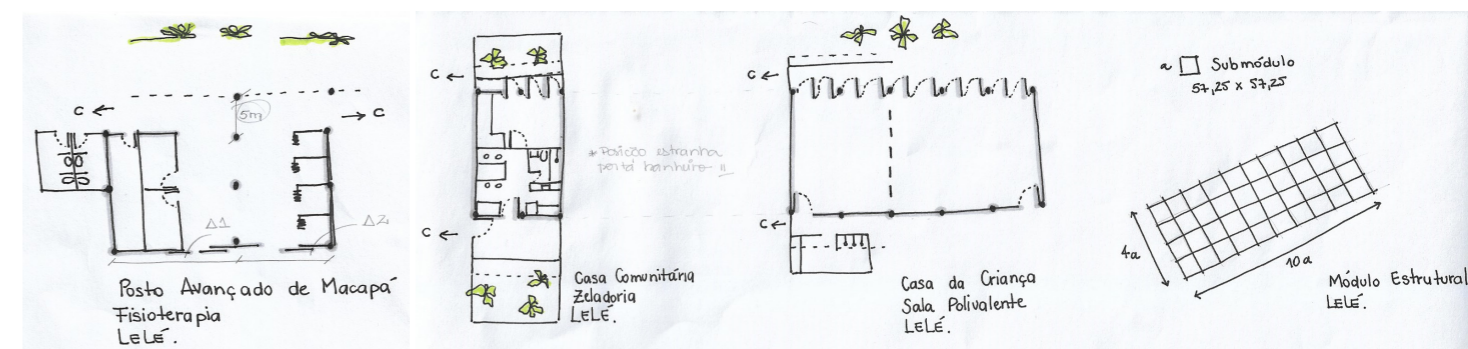 C
C
5m
Δ1
Δ2
Posto Avançado de Macapá
Fisioterapia
LELÉ.
C
C
* Posição estranha
porta banheiro !!
Casa Comunitária
Zeladoria
LELÉ.
C
C
Casa da Criança
Sala Polivalente
LELÉ.
a Submódulo
57,25 x 57,25
4a
10a
Módulo Estrutural
LELÉ.